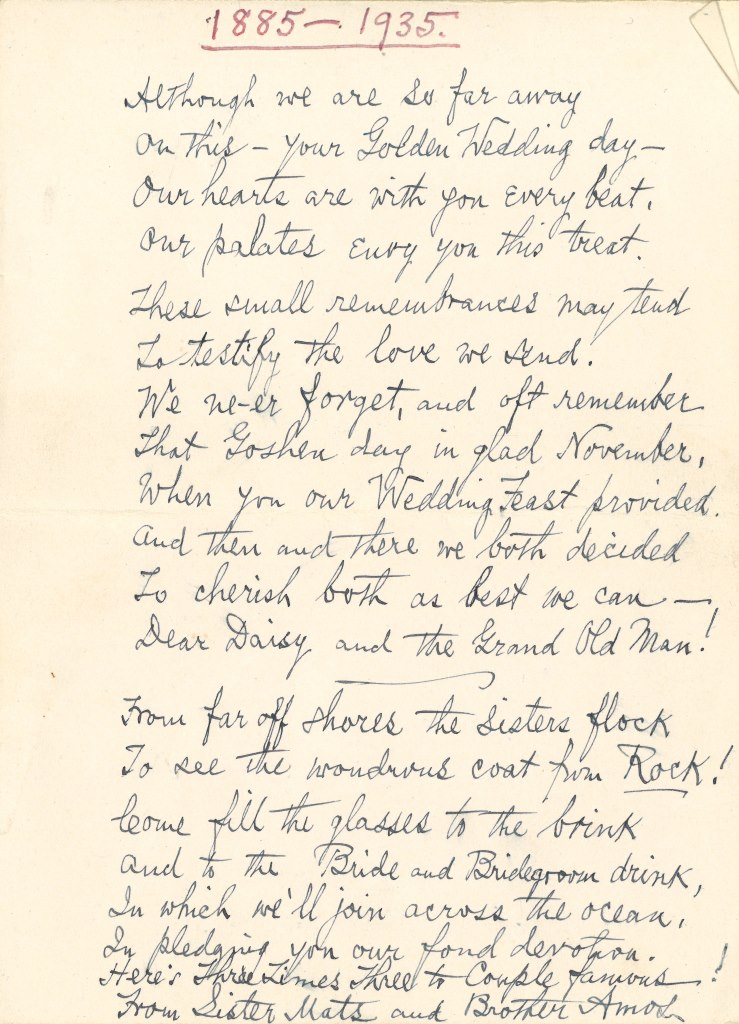 1885 — 1935.
Although we are so far away
On this — your Golden Wedding day —
Our hearts are with you every beat,
Our palates envy you this treat.
These small remembrances may tend
To testify the love we send.
We ne-er forget, and oft remember
That Goshen day in glad November,
When you our Wedding Feast provided.
And then and there we both decided
To cherish both as best we can —
Dear Daisy and the Grand Old Man!
From far off shores the Sisters flock
To see the wondrous coat from Rock!
Come fill the glasses to the brink
And to the Bride and Bridegroom drink,
In which we'll join across the ocean,
In pledging you our fond devotion.
Here's Three Times Three to Couple famous!
From Sister Mats and Brother Amos